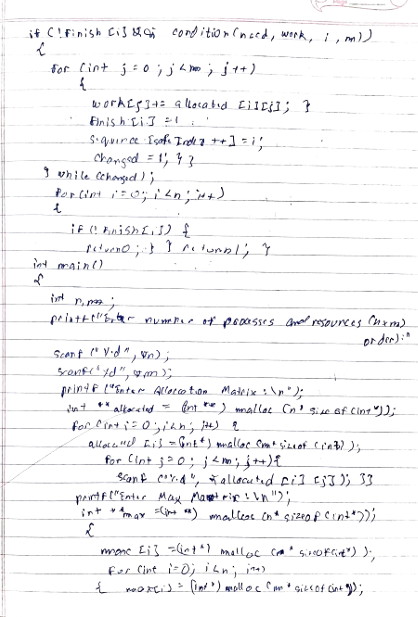 if (!finish[i] && condition(need, work, i, m))
{
for (int j=0; j<m; j++)
{
work[j]+= allocated [i][j]; }
finish[i] =1;
sequence [safeIndex ++] = i;
changed = 1; } }
} while (changed);
for(int i=0; i<n; i++)
{
if (! finish[i]) {
return 0; } } return 1; }
int main()
{
int n,m;
printf("Enter number of processes and resources (n×m)
order):"
scanf ("%d", &n);
scanf("%d", &m);
printf ("Enter Allocation Matrix:\n");
int ** allocated = (int **) malloc (n* sizeof(int*));
for(int i=0; i<n; i++) {
allocated [i] = (int*) malloc (m* sizeof (int));
for (int j=0; j<m; j++){
scanf ("%d", &allocated [i] [j]); }}
printf("Enter Max Matrix:\n");
int **max =(int **) malloc (n* sizeof(int*));
{
[i] =(int*) malloc (m* sizeof(int*));
for (int i=0; i<n; i++)
{ max[i] = (int*) malloc (m* sizeof(int));